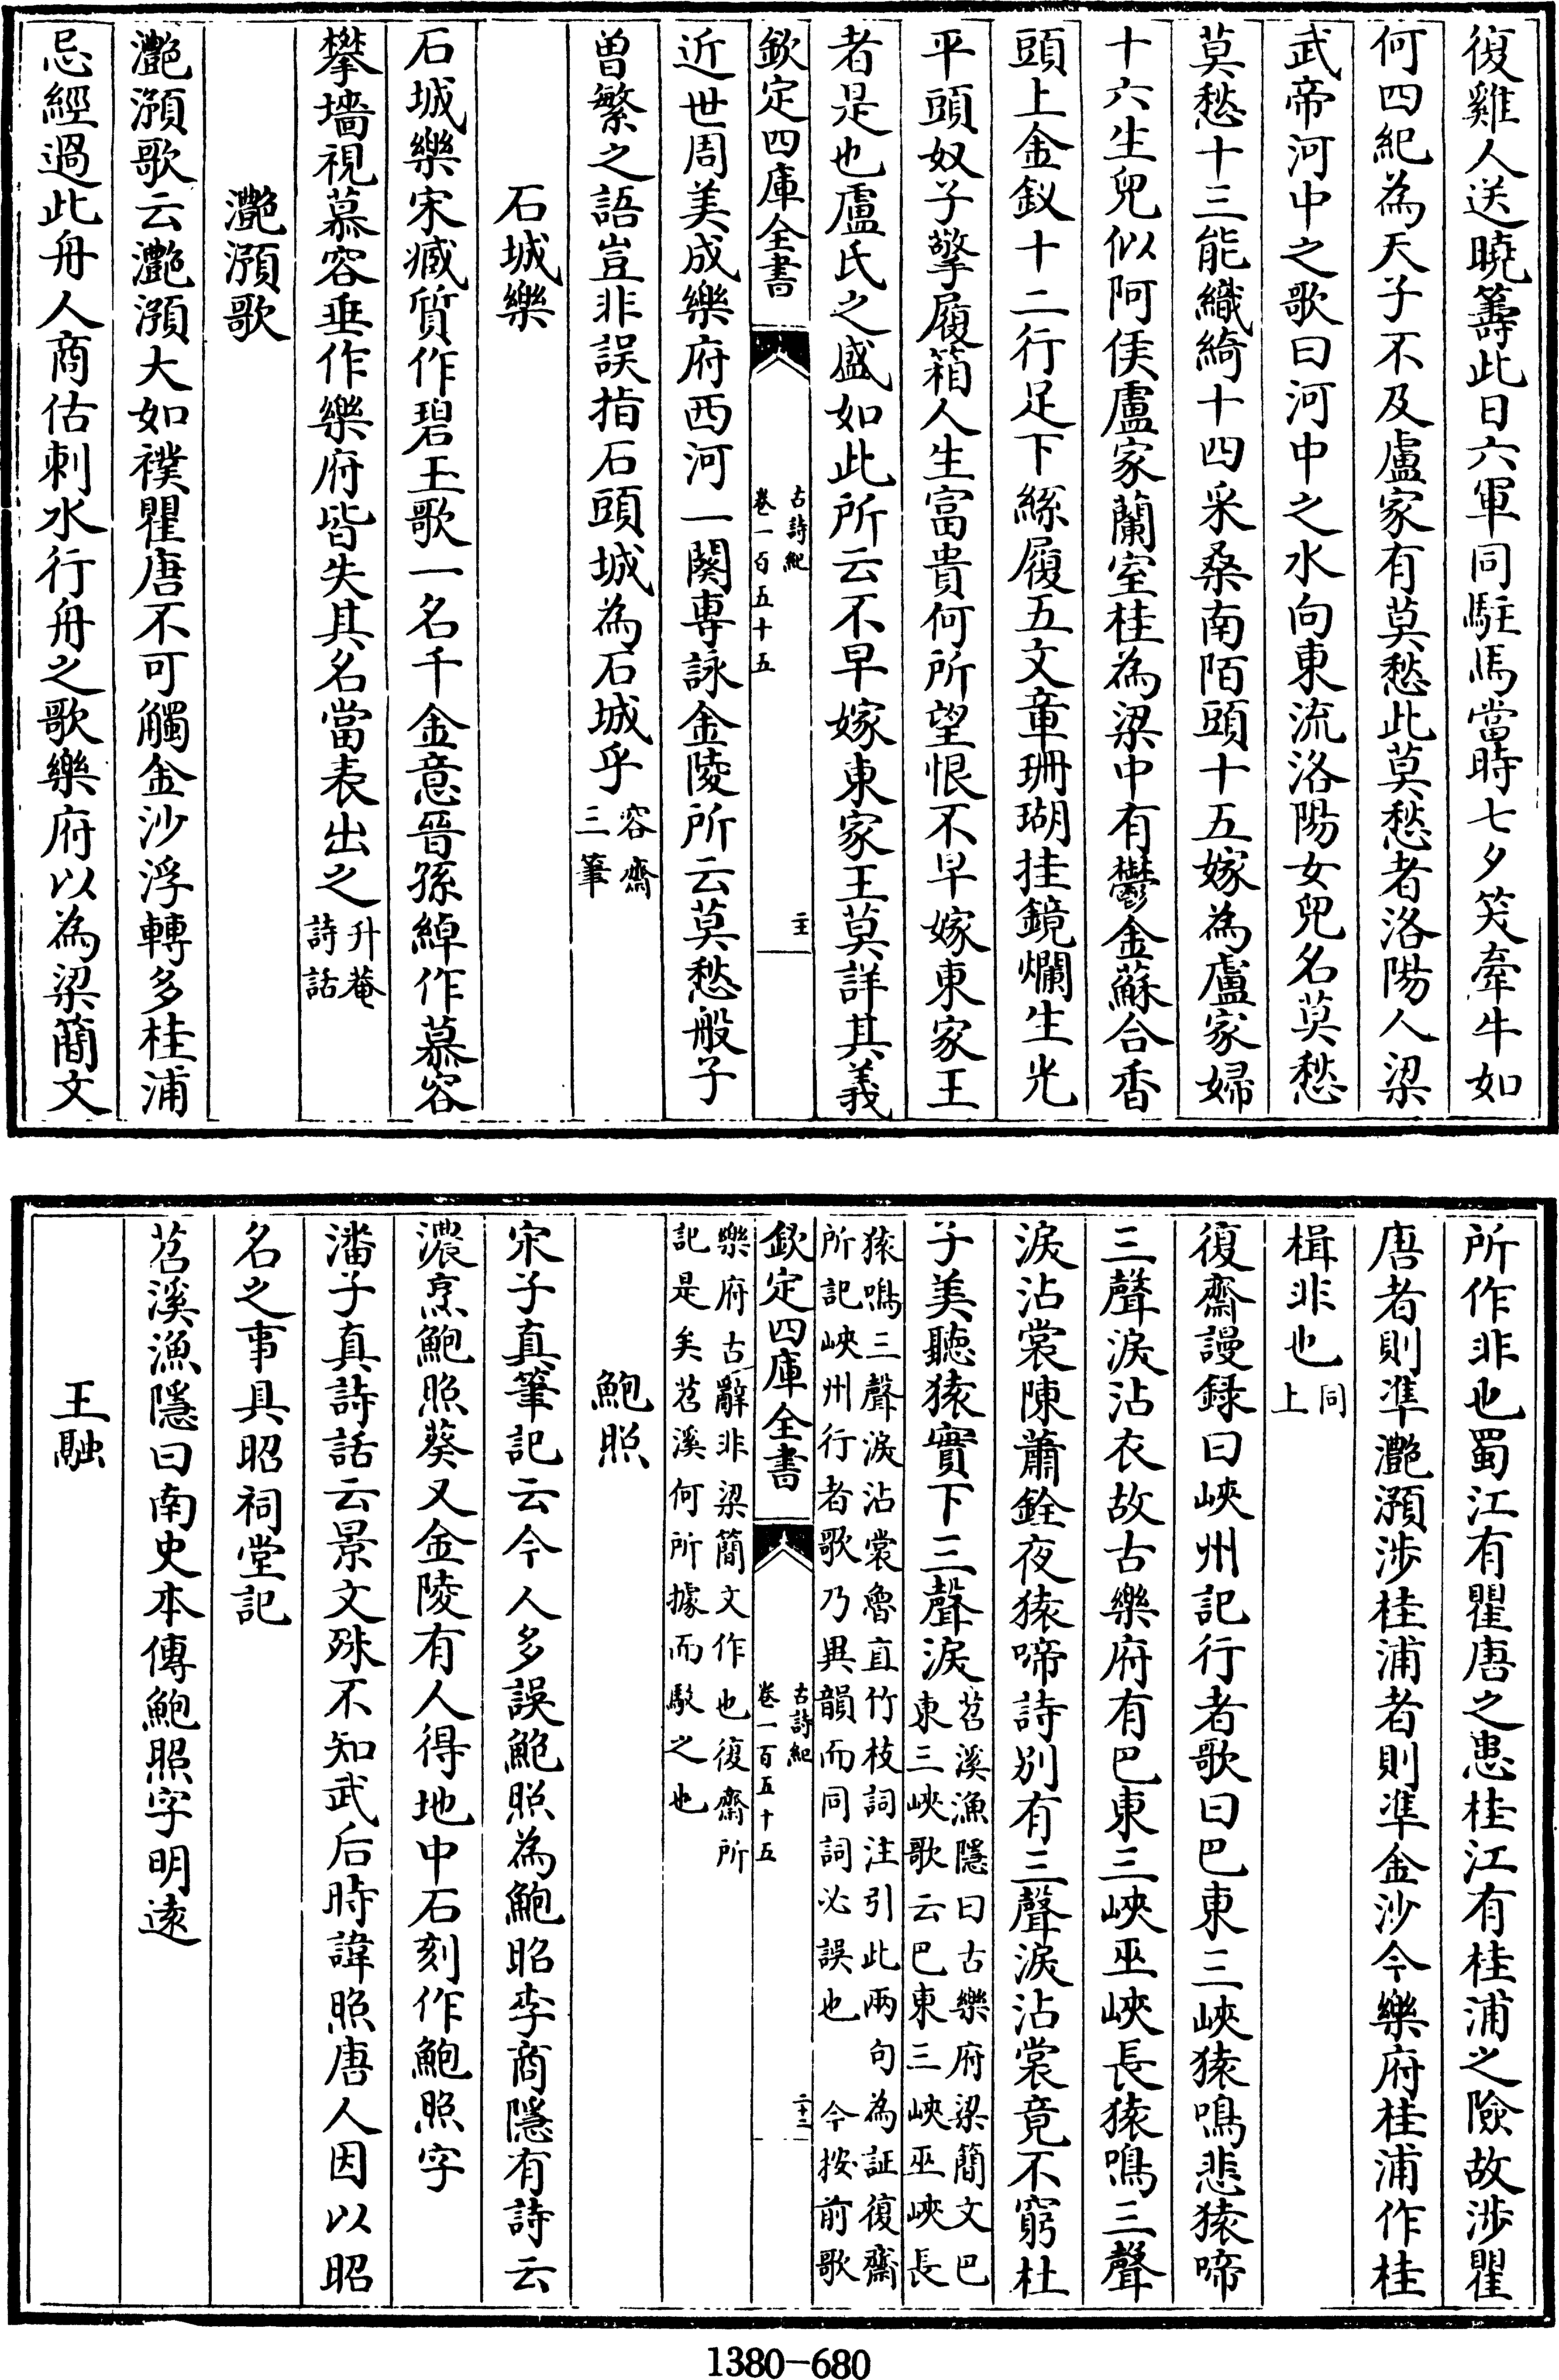 復雞人送曉籌此日六軍同駐馬當時七夕笑牽牛如
何四紀為天子不及盧家有莫愁此莫愁者洛陽人梁
武帝河中之歌曰河中之水向東流洛陽女兒名莫愁
莫愁十三能織綺十四采桑南陌頭十五嫁為盧家婦
十六生兒似阿侯盧家蘭室桂為梁中有鬱金蘇合香
頭上金釵十二行足下絲履五文章珊瑚挂鏡爛生光
平頭奴子擎履箱人生富貴何所望恨不早嫁東家王
者是也盧氏之盛如此所云不早嫁東家王莫詳其義
欽定四庫全書
古詩紀
卷一百五十五
近世周美成樂府西河一闋專詠金陵所云莫愁般子
曾繁之語豈非誤指石頭城為石城乎
容齋
三筆
石城樂
石城樂宋臧質作碧玉歌一名千金意晉孫綽作慕容
攀墻視慕容垂作樂府皆失其名當表出之
升菴
詩話
灔澦歌
灔澦歌云灔澦大如襆瞿唐不可觸金沙浮轉多桂浦
忌經過此舟人商估刺水行舟之歌樂府以為梁簡文
所作非也蜀江有瞿唐之患桂江有桂浦之險故涉瞿
唐者則準灔澦涉桂浦者則準金沙今樂府桂浦作桂
楫非也
同
上
復齋謾録曰峽州記行者歌曰巴東三峽猿鳴悲猿啼
三聲淚沾衣故古樂府有巴東三峽巫峽長猿鳴三聲
淚沾裳陳蕭銓夜猿啼詩別有三聲淚沾裳竟不窮杜
子美聽猿實下三聲淚
苕溪漁隱曰古樂府梁簡文巴
東三峽歌云巴東三峽巫峽長
猿鳴三聲淚沾裳魯直竹枝詞注引此兩句為証復齋
所記峽州行者歌乃異韻而同詞必誤也 今按前歌
欽定四庫全書
古詩紀
卷一百五十五
二十二
樂府古辭非梁簡文作也復齋所
記是矣苕溪何所據而駁之也
鮑照
宋子真筆記云今人多誤鮑照為鮑昭李商隱有詩云
濃烹鮑照葵又金陵有人得地中石刻作鮑照字
潘子真詩話云景文殊不知武后時諱照唐人因以昭
名之事具昭祠堂記
苕溪漁隱曰南史本傳鮑照字明遠
王融
1380-680